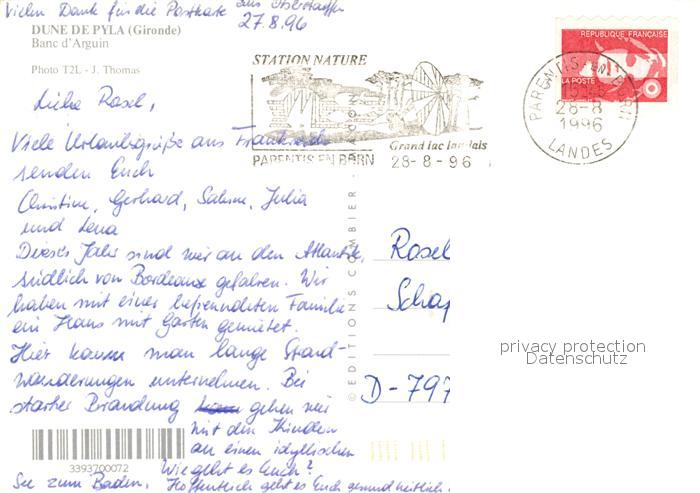 Vielen Dank für die Postkarte aus Oberstaufen
27.8.96
DUNE DE PYLA (Gironde)
Banc d'Arguin
Photo T2L - J. Thomas
STATION NATURE
PARENTIS EN BORN
Grand lac landais
28-8-96
REPUBLIQUE FRANÇAISE
LA POSTE
PARENTIS-EN-BORN
28-8
1996
LANDES
Liebe Rosel,
Viele Urlaubsgrüße aus Frankreich
senden Euch
Christine, Gerhard, Sabine, Julia
und Lena
Dieses Jahr sind wir an den Atlantik,
südlich von Bordeaux gefahren. Wir
haben mit einer befreundeten Familie
ein Haus mit Garten gemietet.
Hier kann man lange Strand-
wanderungen unternehmen. Bei
starker Brandung gehen wir
mit den Kindern
an einen idyllischen
See zum Baden.
Wie geht es Euch?
Hoffentlich geht es Euch gesundheitlich
Rosel
Schap
D-797
© EDITIONS COMBIER
3393700072
privacy protection
Datenschutz